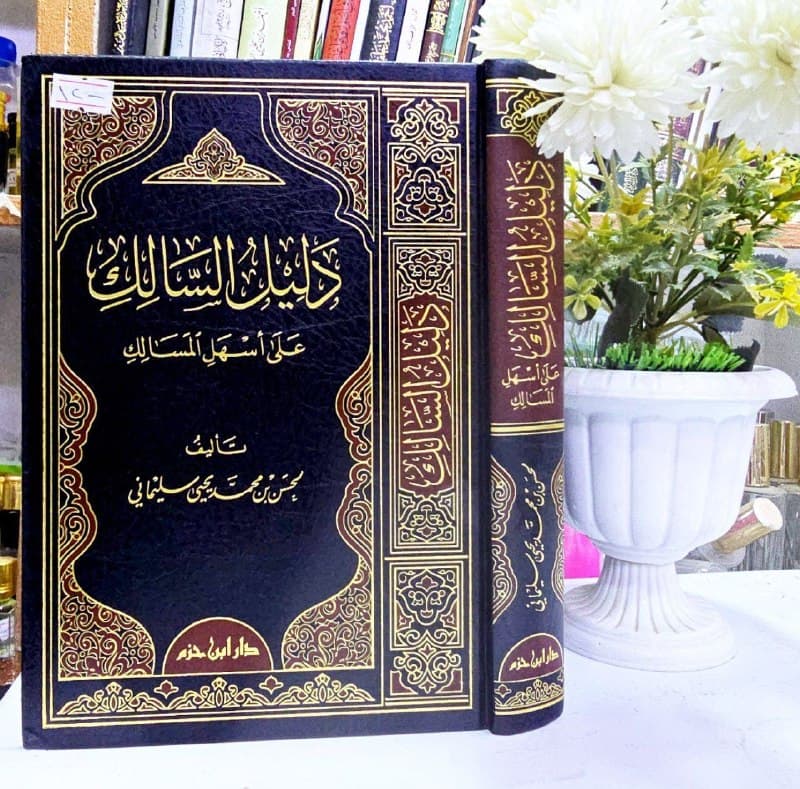 ١٢٠-
دَلِيلُ السَّالِكِ
عَلَى أَسْهَلِ المَسَالِكِ
تَأليفُ
لمحسن بن محمد يحيى سليماني
دار ابن حزم
دَلِيلُ السَّالِكِ
دَلِيلُ السَّالِكِ
عَلَى أَسْهَلِ
المَسَالِكِ
لمحسن بن محمد يحيى سليماني
دار ابن حزم